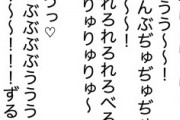 うう〜〜！
んぶぢゅぢゅ
〜〜！
れろれろれろべろ
りゅりゅりゅ〜
っっ♡
ぶぶぶぶううう
〜〜！！！ずる